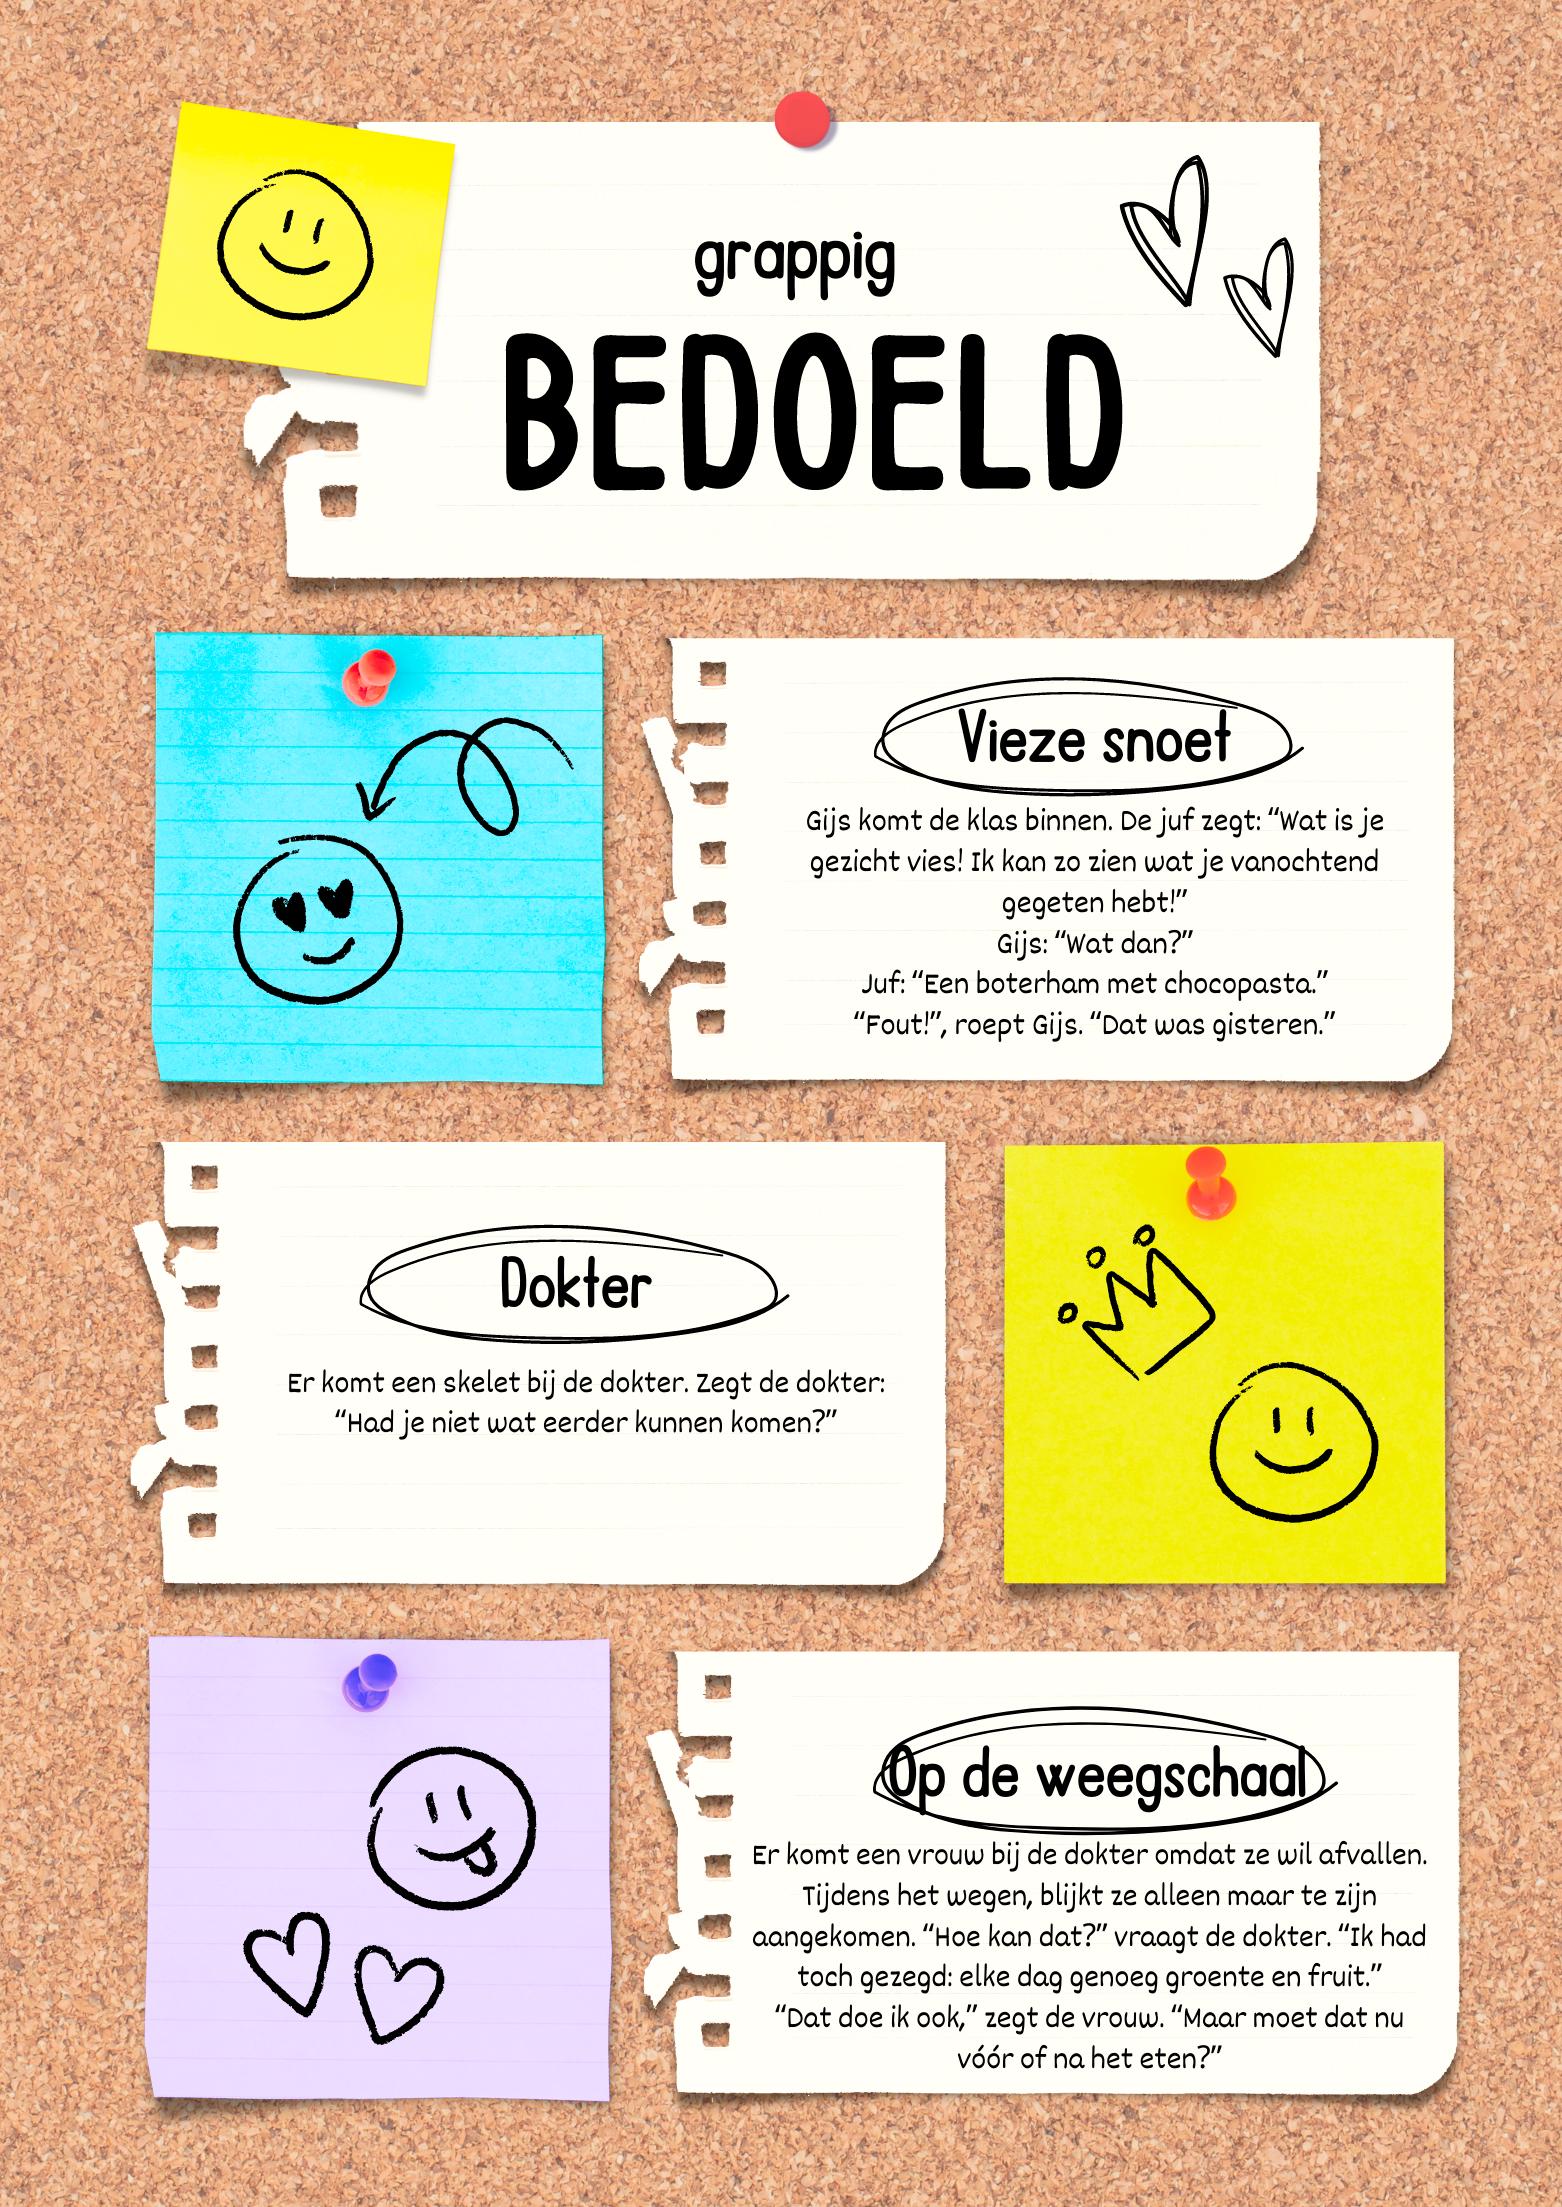 grappig
BEDOELD
Vieze snoet
Gijs komt de klas binnen. De juf zegt: “Wat is je
gezicht vies! Ik kan zo zien wat je vanochtend
gegeten hebt!”
Gijs: “Wat dan?”
Juf: “Een boterham met chocopasta.”
“Fout!”, roept Gijs. “Dat was gisteren.”
Dokter
Er komt een skelet bij de dokter. Zegt de dokter:
“Had je niet wat eerder kunnen komen?”
Op de weegschaal
Er komt een vrouw bij de dokter omdat ze wil afvallen.
Tijdens het wegen, blijkt ze alleen maar te zijn
aangekomen. “Hoe kan dat?” vraagt de dokter. “Ik had
toch gezegd: elke dag genoeg groente en fruit.”
“Dat doe ik ook,” zegt de vrouw. “Maar moet dat nu
vóór of na het eten?”